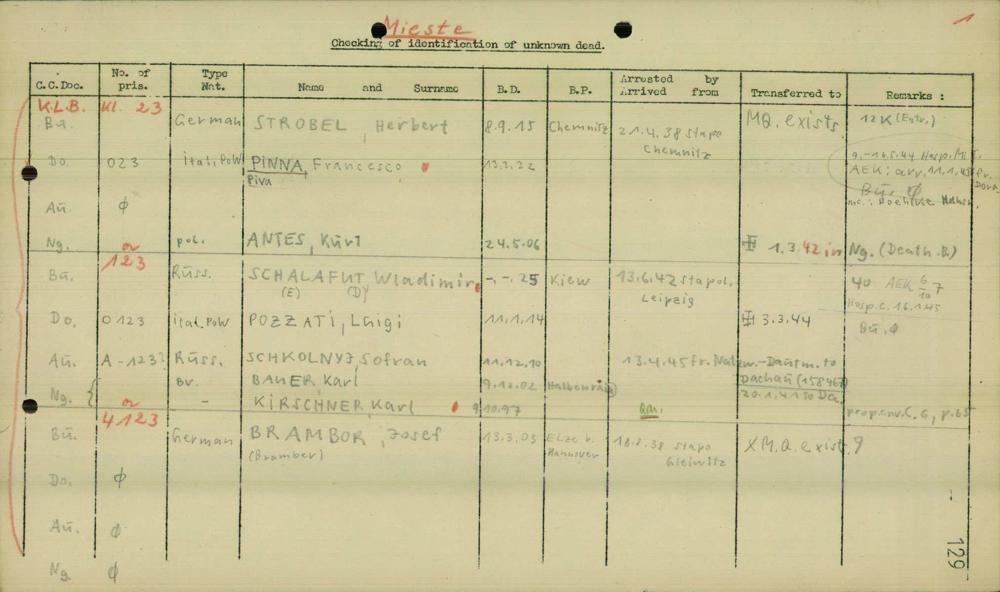 Mieste
1
Checking of identification of unknown dead.
C.C.Doc. No. of pris. Type Nat. Name and Surname B.D. B.P. Arrested by Arrived from Transferred to Remarks :
K.L.B. Kl. 23
Bu. German STROBEL, Herbert 8.9.15 Chemnitz 21.4.38 Stapo Chemnitz MQ. exists. 12K
Do. 023 ital. PoW PINNA, Francesco 13.3.22
Piva
AEK: arr. 11.1.45 fr. Dora
Bu. Ø
Au. Ø
Ng. or pol. ANTES, Kurt 24.5.06 1.3.42 in Ng. (Death. B.)
123
Bu. Russ. SCHALAFUT Wladimir -.-.25 Kiew 13.6.42 Stapol. Leipzig 40 AEK 6/10 7
(E) (D)
Hosp.c. 16.1.45
Do. 0123 ital. PoW POZZATI, Luigi 11.1.14 3.3.44 Bu. Ø
Au. A-123? Russ. SCHKOLNYJ, Sofran 11.12.10 13.4.45 fr. Natzw.-Dautm. to
Bv. BAUER Karl 9.12.02 Dachau (158467)
Ng. or - KIRSCHNER Karl 9.10.97 20.1.41 to Da. prop.env. C. 6, p.65
4123
Bu. German BRAMBOR, Josef 13.3.03 Elze b. Hannover 18.8.38 Stapo Gleiwitz X M.Q. exist. 9
(Bramber)
Do. Ø
Au. Ø
Ng. Ø
129